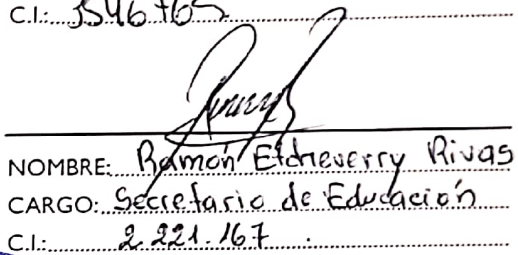 C.I.: 3546765
NOMBRE: Ramón Etcheverry Rivas
CARGO: Secretario de Educación
C.I.: 2.221.167